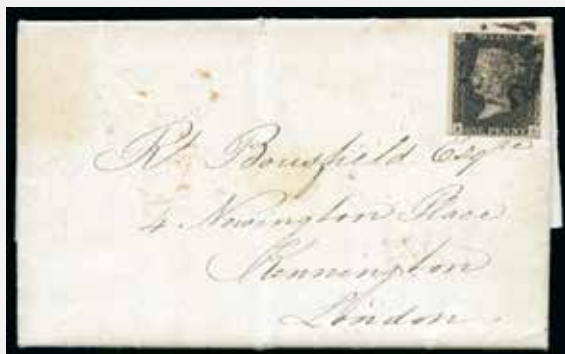 POSTAGE
ONE PENNY
Rt. Bousfield Esqre
4 Newington Place
Kennington
London.